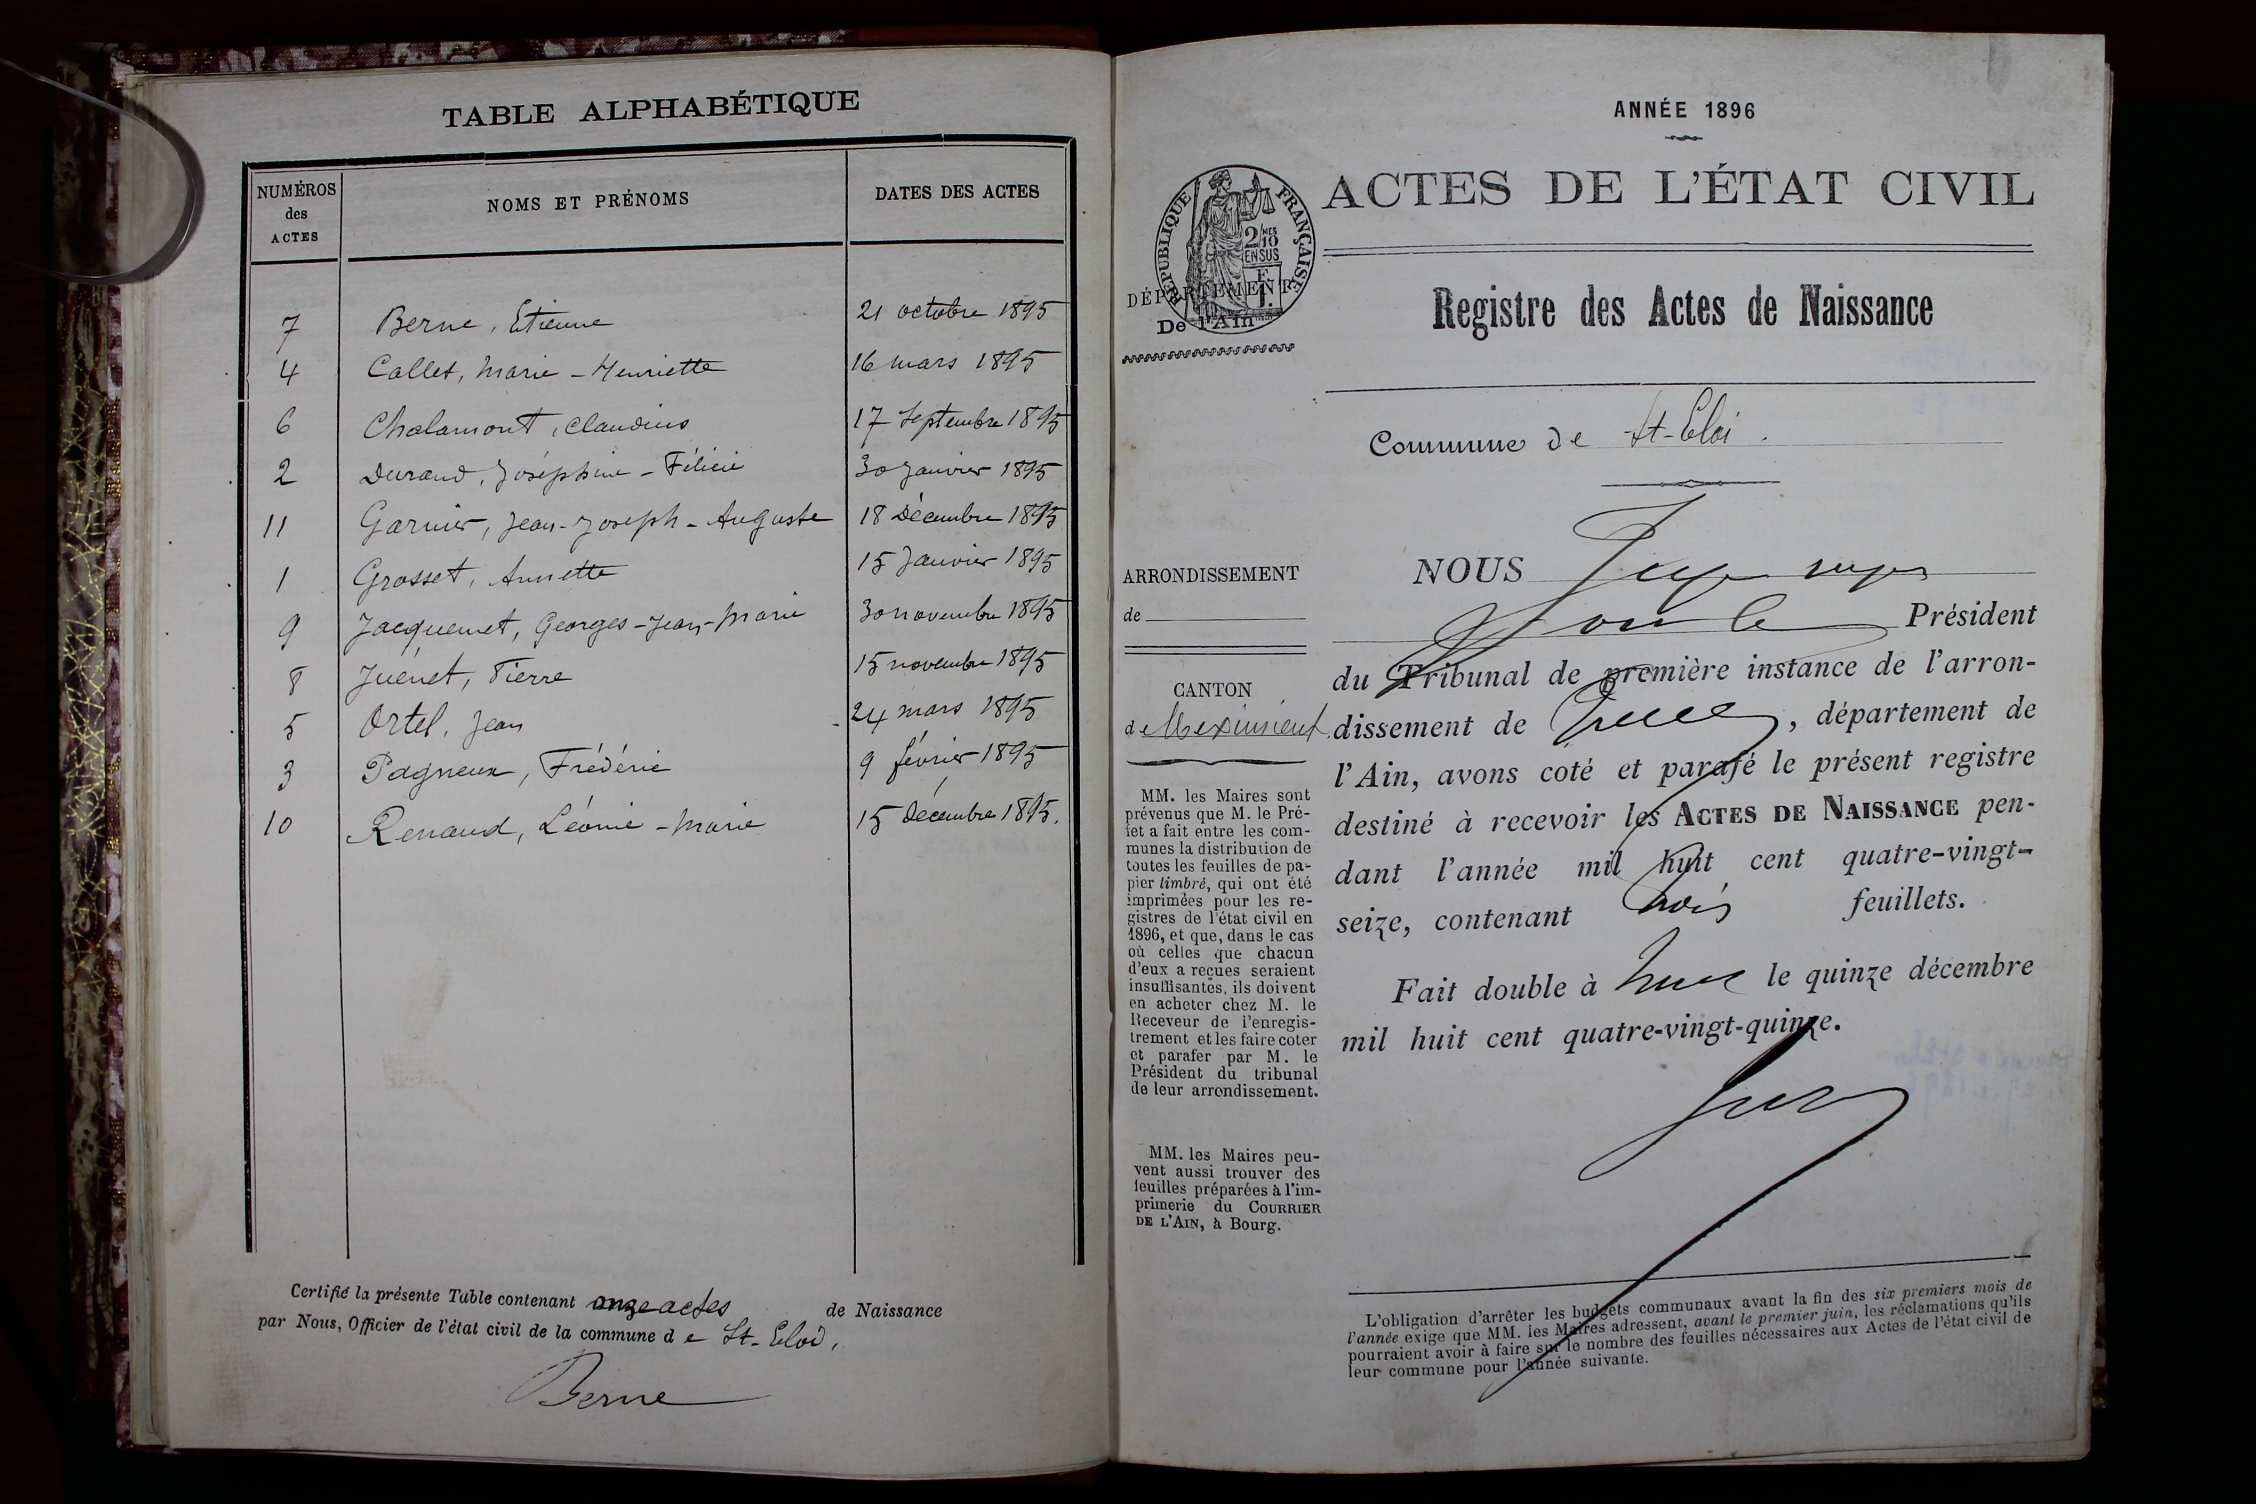 TABLE ALPHABÉTIQUE
NUMÉROS
des
ACTES
NOMS ET PRÉNOMS
DATES DES ACTES
7 Berne, Etienne 21 octobre 1895
4 Callet, Marie - Henriette 16 mars 1895
6 Chalamont, Claudius 17 Septembre 1895
2 Durand, Joséphine - Félicie 30 Janvier 1895
11 Garnier, Jean-Joseph - Auguste 18 Décembre 1895
1 Grosset, Annette 15 Janvier 1895
9 Jacquemet, Georges - Jean - Marie 30 novembre 1895
8 Juénet, Pierre 15 novembre 1895
5 Ortel, Jean 24 mars 1895
3 Pagneux, Frédéric 9 février 1895
10 Renaud, Léonie - Marie 15 Décembre 1895.
Certifié la présente Table contenant onze actes de Naissance
par Nous, Officier de l'état civil de la commune d e St-Eloi,
Berne
ANNÉE 1896
ACTES DE L'ÉTAT CIVIL
RÉPUBLIQUE FRANÇAISE
2/10 MES
EN SUS
DÉPARTEMENT
De l'Ain
Registre des Actes de Naissance
Commune de St-Eloi.
ARRONDISSEMENT
de
CANTON
de Meximieux
MM. les Maires sont
prévenus que M. le Pré-
fet a fait entre les com-
munes la distribution de
toutes les feuilles de pa-
pier timbré, qui ont été
imprimées pour les re-
gistres de l'état civil en
1896, et que, dans le cas
où celles que chacun
d'eux a reçues seraient
insuffisantes, ils doivent
en acheter chez M. le
Receveur de l'enregis-
trement et les faire coter
et parafer par M. le
Président du tribunal
de leur arrondissement.
MM. les Maires peu-
vent aussi trouver des
feuilles préparées à l'im-
primerie du COURRIER
DE L'AIN, à Bourg.
NOUS Juge
pour le Président
du Tribunal de première instance de l'arron-
dissement de Trévoux, département de
l'Ain, avons coté et parafé le présent registre
destiné à recevoir les ACTES DE NAISSANCE pen-
dant l'année mil huit cent quatre-vingt-
seize, contenant trois feuillets.
Fait double à le quinze décembre
mil huit cent quatre-vingt-quinze.
L'obligation d'arrêter les budgets communaux avant la fin des six premiers mois de
l'année exige que MM. les Maires adressent, avant le premier juin, les réclamations qu'ils
pourraient avoir à faire sur le nombre des feuilles nécessaires aux Actes de l'état civil de
leur commune pour l'année suivante.